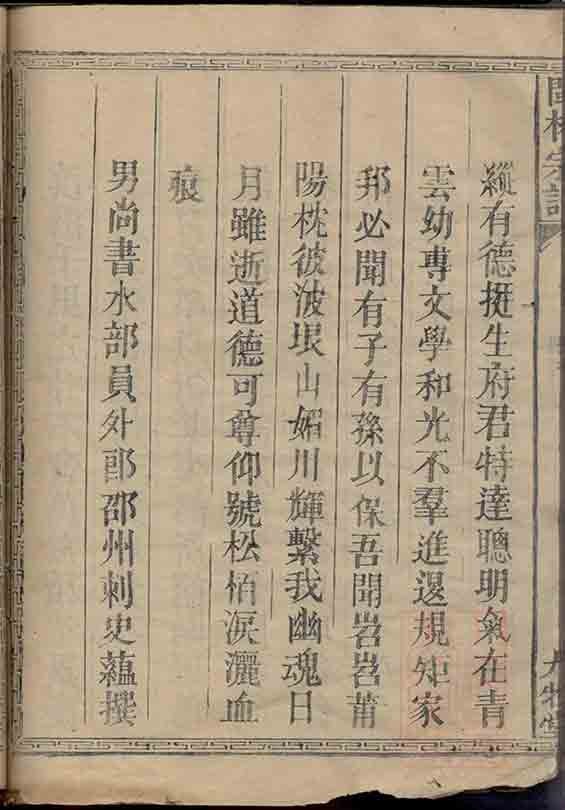 閩林宗譜
縱有德挺生府君特達聰明氣在青
雲幼專文學和光不羣進退規矩家
邦必聞有子有孫以保吾聞岩岩莆
陽枕彼波垠山媚川輝繫我幽魂日
月雖逝道德可尊仰號松栢淚灑血
痕
男尚書水部員外郎邵州刺史蘊撰